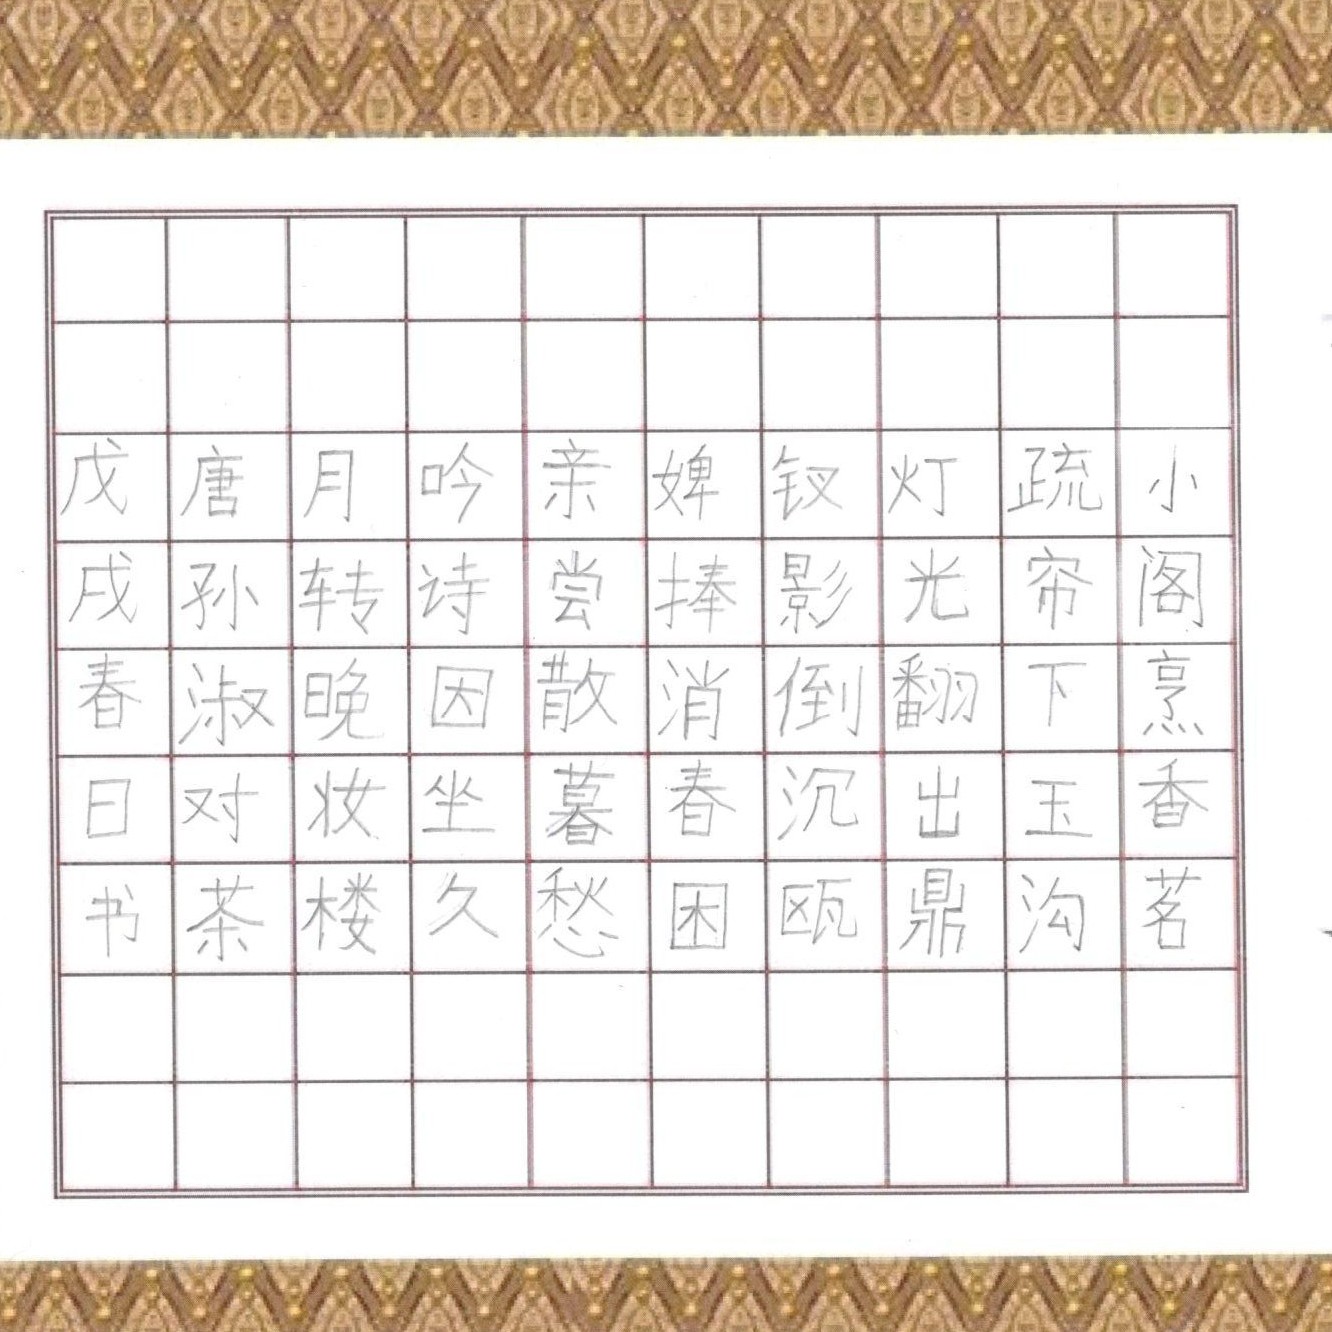 小阁烹香茗
疏帘下玉沟
灯光翻出鼎
钗影倒沉瓯
婢捧消春困
亲尝散暮愁
吟诗因坐久
月转晚妆楼
唐孙淑对茶
戊戌春日书